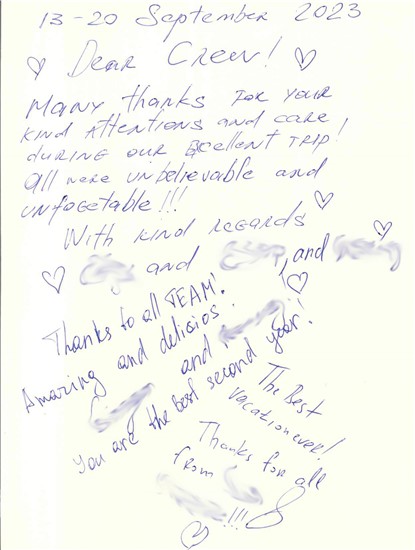 13-20 September 2023
Dear Crew!
Many thanks for your
kind attentions and care
during our excellent trip!
all were unbelievable and
unfogetable!!!
With kind regards
and and
Thanks to all TEAM!
Amazing and delisios!
and
You are the best second year!
The Best
vacation ever!
Thanks for all
from
!!!